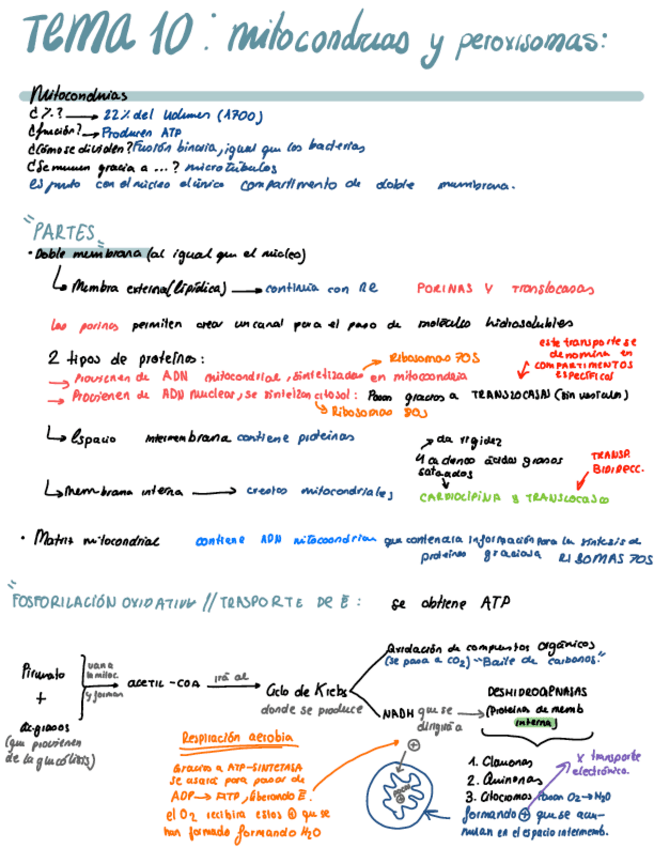 TEMA 10: mitocondrias y peroxisomas:
Mitocondrias
¿%? → 22% del volumen (1700)
¿función? → Producen ATP
¿Cómo se dividen? Fusión binaria, igual que las bacterias
¿Se mueven gracia a ...? microtúbulos
es junto con el núcleo el único compartimento de doble membrana.
"PARTES"
• Doble membrana (al igual que el núcleo)
↳ Membra externa (lipídica) → continua con RE PORINAS Y Translocasas
Las porinas permiten crear un canal para el paso de moléculas hidrosolubles
2 tipos de proteínas:
→ Ribosomas 70S
→ Provienen de ADN mitocondrial, sintetizadas en mitocondria
→ Provienen de ADN nuclear, se sintetizan citosol: Pasan gracias a TRANSLOCASAS (sin vesículas)
→ Ribosomas 80S
este transporte se
denomina en
COMPARTIMENTOS
ESPECÍFICOS
↳ Espacio intermembrana contiene proteínas
↳ Membrana interna → crestas mitocondriales
da rigidez
4 cadenas ácidos grasos
saturados
CARDIOLIPINA y TRANSLOCASAS
TRANSP.
BIDIRECC.
• Matriz mitocondrial contiene ADN mitocondrial que contendría información para la síntesis de
proteínas gracias a RISOMAS 70S
"FOSFORILACIÓN OXIDATIVA // TRASPORTE DE E: se obtiene ATP
Piruvato
+
ác. grasos
(que provienen
de la glucólisis)
van a
la mitoc.
y forman
ACETIL-COA
irá al
Ciclo de Krebs
donde se produce
Oxidación de compuestos orgánicos
(se pasa a CO2) "Baile de carbonos."
NADH que se
dirigirá a
DESHIDROGENASAS
(Proteína de memb
interna)
1. Flavonas
2. Quinonas
3. Citocromos Pasan O2 → H2O
formando ⊕ que se acu-
mulan en el espacio intermemb.
x transporte
electrónico.
Respiración aerobia
Gracias a ATP-SINTETASA
se usará para pasar de
ADP → ATP, liberando E.
el O2 recibirá estos ⊕ que se
han formado formando H2O
⊕